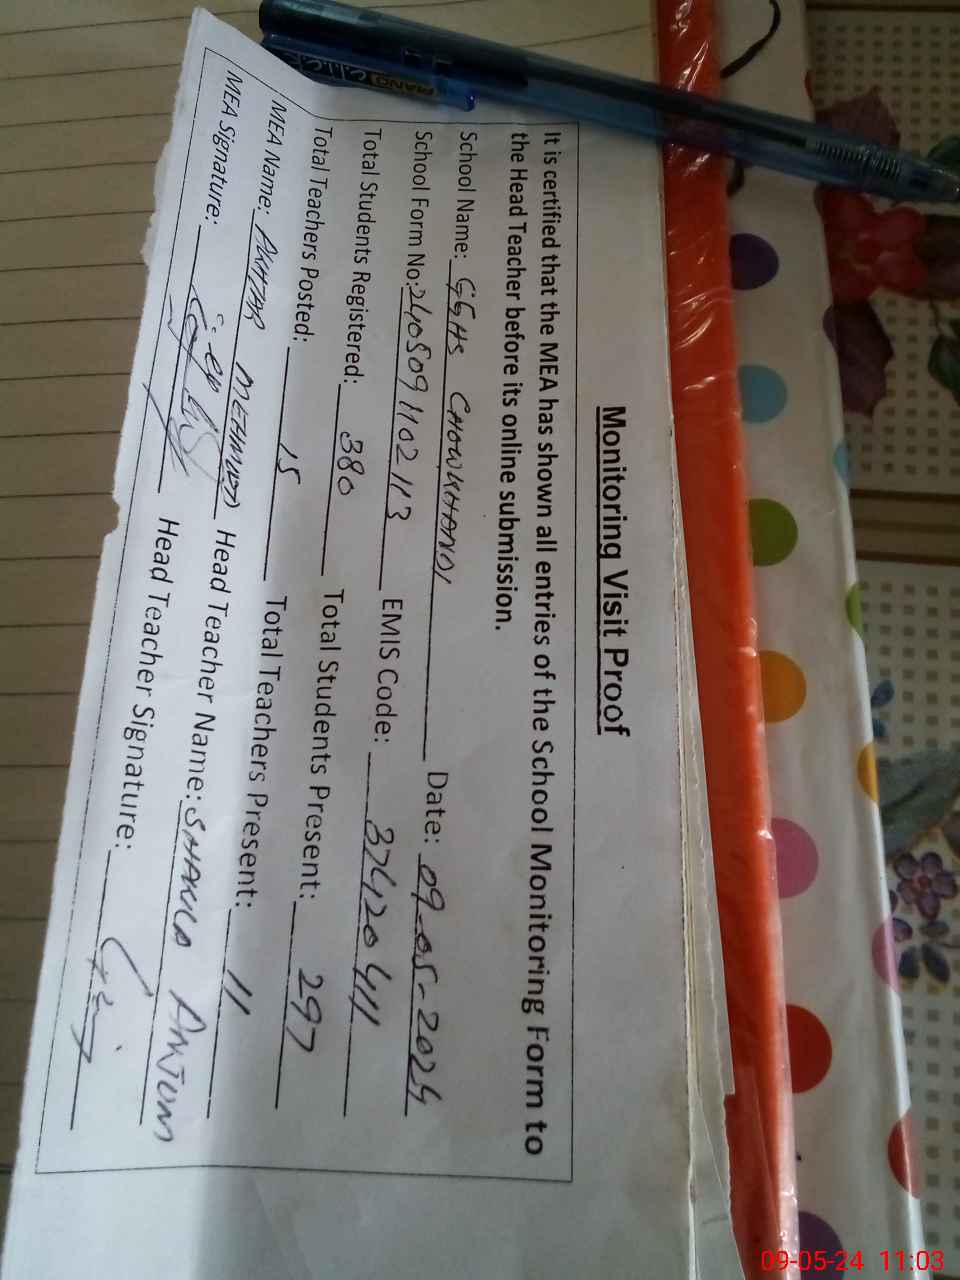 Monitoring Visit Proof
It is certified that the MEA has shown all entries of the School Monitoring Form to
the Head Teacher before its online submission.
School Name: GGHS CHOWKHANDI Date: 09-05-2024
School Form No: 240509 1102 113 EMIS Code: 37420411
Total Students Registered: 380 Total Students Present: 297
Total Teachers Posted: 15 Total Teachers Present: 11
MEA Name: AKHTAR MEHMOOD Head Teacher Name: SHAKILA ANJUM
MEA Signature: Head Teacher Signature:
PIANO C.L.I.C.
09-05-24 11:03